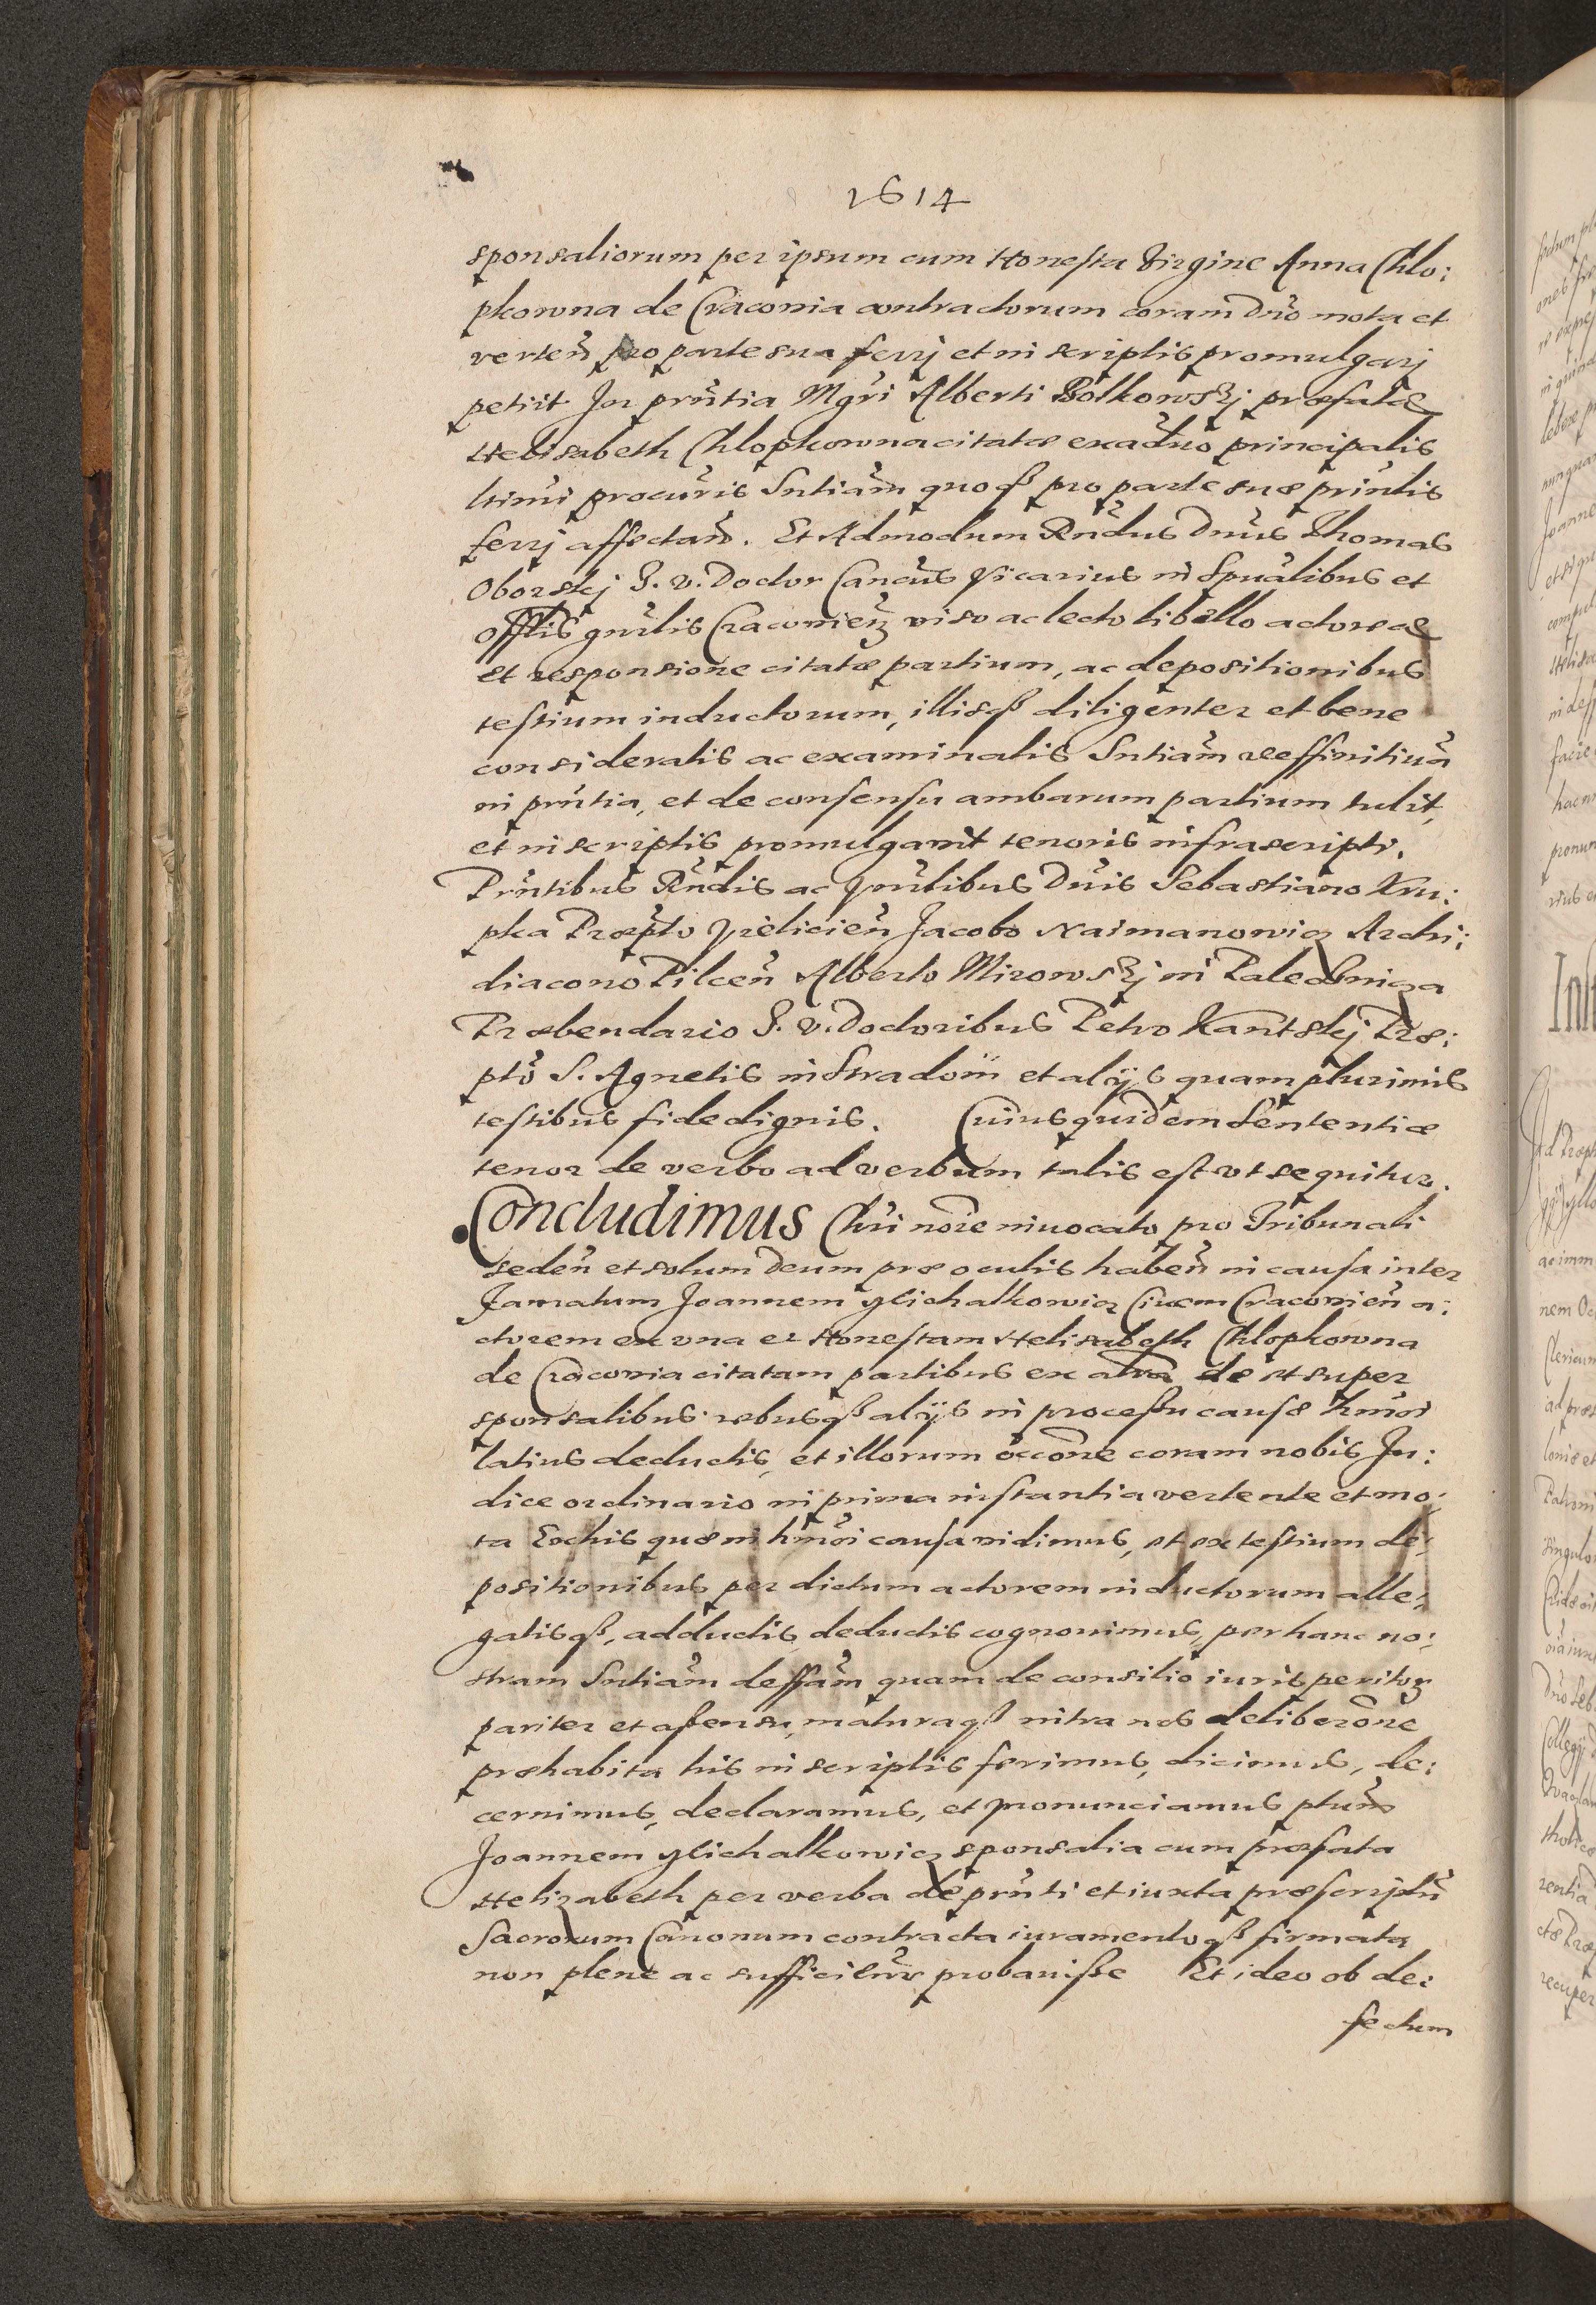 1614
sponsaliorum per ipsum cum Honesta Virgine Anna Chlo:
pkowna de Cracovia contractorum coram Dno mota et
verteñ pro parte sua ferrj et in scriptis promulgarj
petijt In pñtia Mgri Alberti Bolkowskj præfatæ
Helisabeth Chlopkowna citatæ ex aduo principalis
ltimi procuris Sntiam quoqß pro parte suæ prinlis
ferrj affectañ. Et Admodum Rñdus Dnus Thomas
Oborskj J. V. Doctor Cancus Vicarius in Spualibus et
Offlis gnrlis Cracovien viso ac lecto libello actoreæ
et responsione citatæ partium, ac depositionibus
testium inductorum, illisqß diligenter et bene
consideratis ac examinatis Sntiam deffinitiua
in pñtia, et de consensu ambarum partium tulit,
et in scriptis promulgauit tenoris infrascripti.
Prntibus Rndis ac Vnrlibus Dnis Sebastiano Kru:
pka Præpto Vieliciеñ Jacobo Naimanowicz Archi:
diacono Pilceñ Alberto Mirowskj in Paleczniza
Præbendario J. V. Doctoribus Petro Kantskj Præ:
pto S. Agnetis in Stradom et alijs quam plurimis
testibus fide dignis. Cuius quidem Sententiæ
tenor de verbo ad verbum talis est vt sequitur.
Concludimus Chri noie inuocato pro Tribunali
sedeñ et solum Deum præ oculis habeñ in causa inter
Famatum Joannem Michalkowicz Ciuem Cracovieñ a:
ctorem ex vna et Honestam Helisabeth Chlopkowna
de Cracovia citatam partibus ex altra de et super
sponsalibus rebusqß alijs in processu causæ hmoi
latius deductis, et illorum occone coram nobis Ju:
dice ordinario in prima instantia vertente et mo:
ta Ex his quæ in hmoi causa vidimus, et ex testium de:
positionibus per dictum actorem inductorum alle:
gatisqß, adductis deductis cognouimus, per hanc no:
stram Sntiam deffam quam de consilio iuris peritor
pariter et assensu, maturaqß intra nos deliberone
præhabita his in scriptis ferimus, dicimus, de:
cernimus, declaramus, et pronunciamus ptum
Joannem Michalkowicz sponsalia cum præfata
Helizabeth per verba de prnti et iuxta præscriptu
Sacrorum Canonum contracta iuramentoqß firmata
non plene ac sufficienr probauisse Et ideo ob de:
fectum